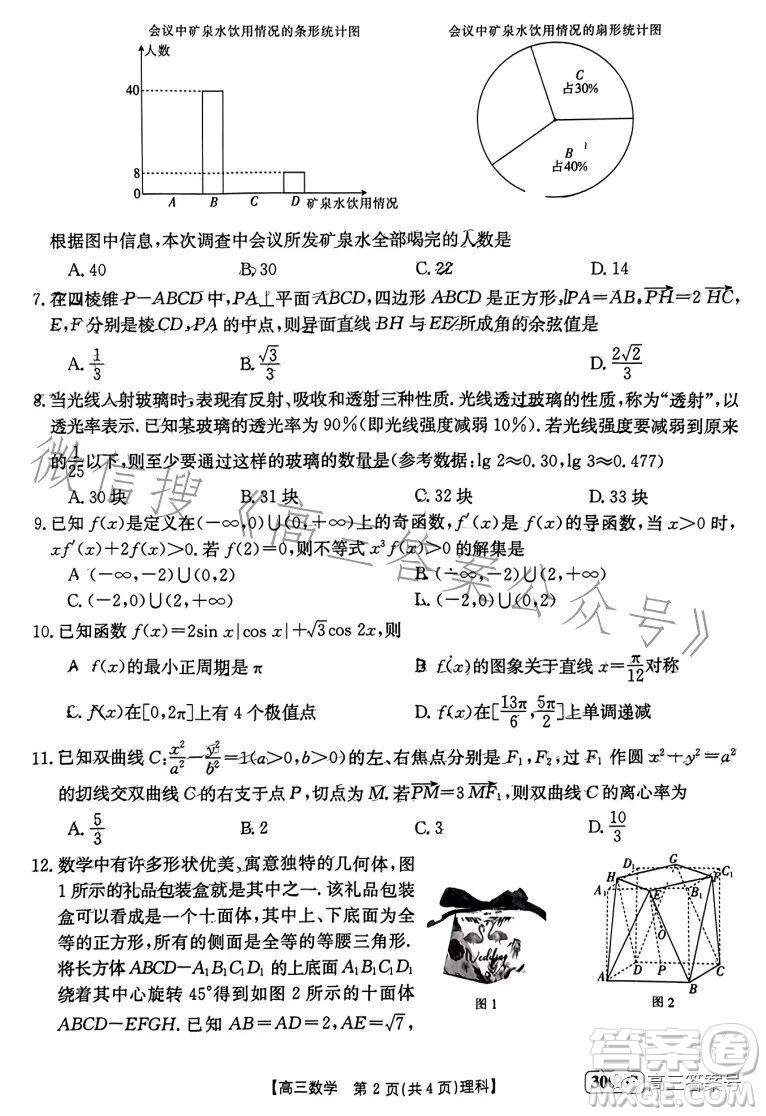 会议中矿泉水饮用情况的条形统计图 会议中矿泉水饮用情况的扇形统计图
人数
40
8
0
A B C D 矿泉水饮用情况
C
占30%
B
占40%
根据图中信息,本次调查中会议所发矿泉水全部喝完的人数是
A. 40 B. 30 C. 22 D. 14
7. 在四棱锥 P-ABCD 中,PA⊥平面 ABCD,四边形 ABCD 是正方形,PA=AB,PH=2 HC,
E,F 分别是棱 CD,PA 的中点,则异面直线 BH 与 EF 所成角的余弦值是
A. 1/3 B. √3/3 D. 2√2/3
8. 当光线入射玻璃时,表现有反射、吸收和透射三种性质. 光线透过玻璃的性质,称为“透射”,以
透光率表示. 已知某玻璃的透光率为 90%(即光线强度减弱 10%). 若光线强度减弱到原来
的 1/25 以下,则至少通过这样的玻璃的数量是(参考数据:lg 2≈0.30,lg 3≈0.477)
A. 30 块 B. 31 块 C. 32 块 D. 33 块
9. 已知 f(x)是定义在(-∞,0)∪(0,+∞)上的奇函数,f′(x)是 f(x)的导函数,当 x>0 时,
xf′(x)+2f(x)>0. 若 f(2)=0,则不等式 x³f(x)>0 的解集是
A (-∞,-2)∪(0,2) B. (-∞,-2)∪(2,+∞)
C. (-2,0)∪(2,+∞) D. (-2,0)∪(0,2)
10. 已知函数 f(x)=2sin x|cos x|+√3cos 2x,则
A f(x)的最小正周期是 π B f(x)的图象关于直线 x=π/12对称
C. f(x)在[0,2π]上有 4 个极值点 D. f(x)在[13π/6,5π/2]上单调递减
11. 已知双曲线 C:x²/a²-y²/b²=1(a>0,b>0)的左、右焦点分别是 F₁,F₂,过 F₁ 作圆 x²+y²=a²
的切线交双曲线 C 的右支于点 P,切点为 M. 若PM=3 MF₁,则双曲线 C 的离心率为
A. 5/3 B. 2 C. 3 D. 10/3
12. 数学中有许多形状优美、寓意独特的几何体,图
1 所示的礼品包装盒就是其中之一. 该礼品包装
盒可以看成是一个十面体,其中上、下底面为全
等的正方形,所有的侧面是全等的等腰三角形.
将长方体 ABCD-A₁B₁C₁D₁ 的上底面 A₁B₁C₁D₁
绕着其中心旋转 45°得到如图 2 所示的十面体
ABCD-EFGH. 已知 AB=AD=2,AE=√7,
图 1
D₁ G C₁
H F
A₁ E B₁
O
D P C
A B
图 2
【高三数学 第 2 页(共 4 页)理科】
高三答案号
微信搜《高三答案公众号》
答案圈